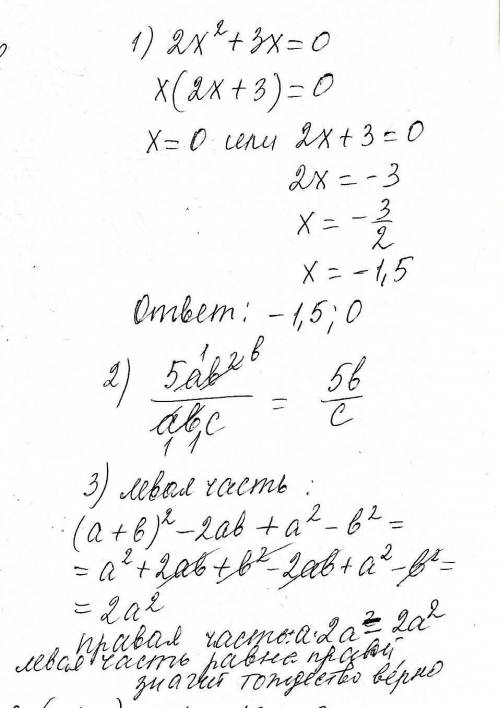 1) 2x² + 3x = 0
x(2x + 3) = 0
x = 0 или 2x + 3 = 0
2x = -3
x = -3/2
x = -1,5
Ответ: -1,5; 0
2) 5ab²/abc = 5b/c
3) левая часть:
(a + b)² - 2ab + a² - b² =
= a² + 2ab + b² - 2ab + a² - b² =
= 2a²
правая часть: a·2a = 2a²
левая часть равна правой
значит тождество верно